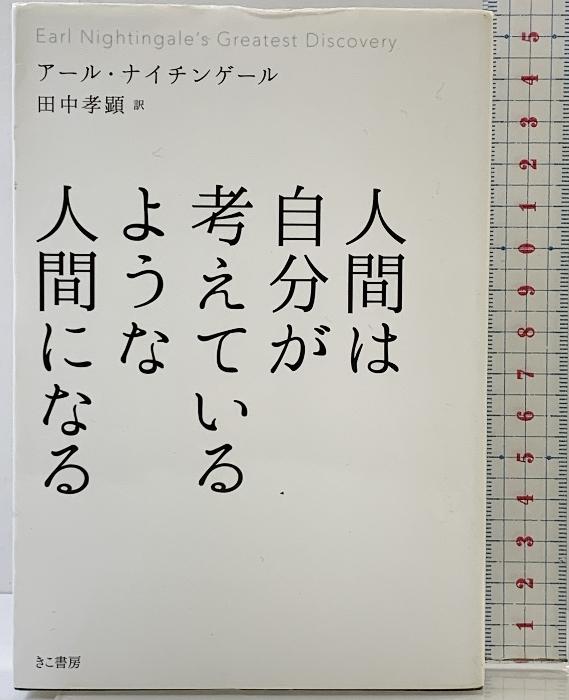 Earl Nightingale's Greatest Discovery
アール・ナイチンゲール
田中孝顕 訳
人間は
自分が
考えている
ような
人間になる
きこ書房
5
4
3
2
1
0
9
8
7
6
5
4
3
2
1